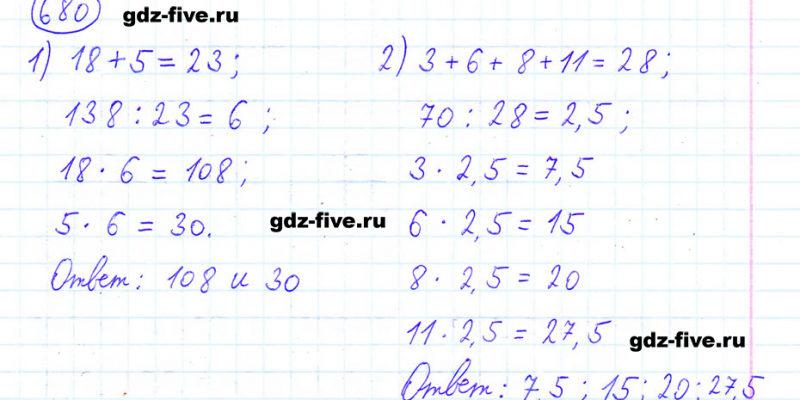 680 gdz-five.ru
1) 18 + 5 = 23;
138 : 23 = 6;
18 · 6 = 108;
5 · 6 = 30.
gdz-five.ru
Ответ: 108 и 30
2) 3 + 6 + 8 + 11 = 28;
70 : 28 = 2,5;
3 · 2,5 = 7,5
6 · 2,5 = 15
8 · 2,5 = 20
11 · 2,5 = 27,5
gdz-five.ru
Ответ: 7,5; 15; 20; 27,5